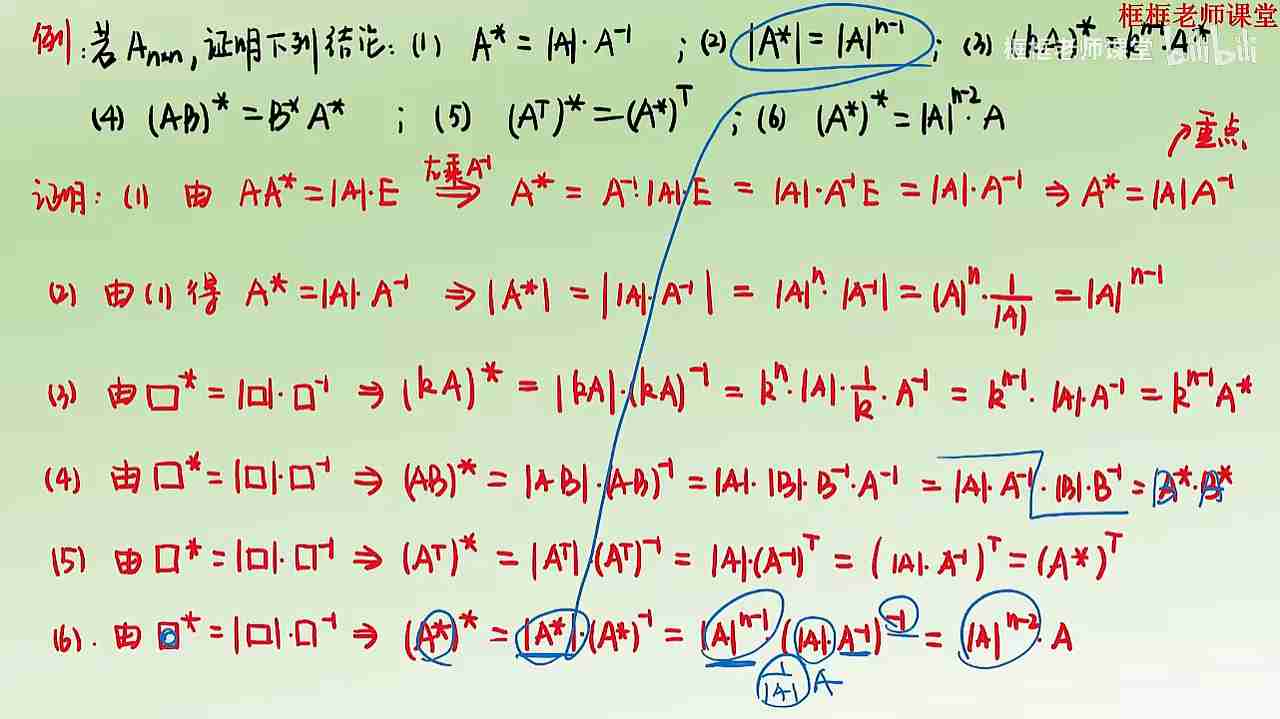 框框老师课堂
框框老师课堂 bilibili
例:若 Aₙₓₙ, 证明下列结论: (1) A* = |A|·A⁻¹ ; (2) |A*| = |A|ⁿ⁻¹ ; (3) (kA)* = kⁿ⁻¹·A*
(4) (AB)* = B*A* ; (5) (Aᵀ)* = (A*)ᵀ ; (6) (A*)* = |A|ⁿ⁻²·A
↗重点
证明: (1) 由 AA* = |A|·E 左乘A⁻¹ ⇒ A* = A⁻¹·|A|·E = |A|·A⁻¹E = |A|·A⁻¹ ⇒ A* = |A|A⁻¹
(2) 由(1)得 A* = |A|·A⁻¹ ⇒ |A*| = ||A|·A⁻¹| = |A|ⁿ·|A⁻¹| = |A|ⁿ·1/|A| = |A|ⁿ⁻¹
(3) 由 □* = |□|·□⁻¹ ⇒ (kA)* = |kA|·(kA)⁻¹ = kⁿ·|A|·1/k·A⁻¹ = kⁿ⁻¹·|A|·A⁻¹ = kⁿ⁻¹A*
(4) 由 □* = |□|·□⁻¹ ⇒ (AB)* = |AB|·(AB)⁻¹ = |A|·|B|·B⁻¹·A⁻¹ = |A|·A⁻¹·|B|·B⁻¹ = B*·A*
(5) 由 □* = |□|·□⁻¹ ⇒ (Aᵀ)* = |Aᵀ|·(Aᵀ)⁻¹ = |A|·(A⁻¹)ᵀ = (|A|·A⁻¹)ᵀ = (A*)ᵀ
(6). 由 □* = |□|·□⁻¹ ⇒ (A*)* = |A*|·(A*)⁻¹ = |A|ⁿ⁻¹·(|A|·A⁻¹)⁻¹ = |A|ⁿ⁻²·A
1/|A| A